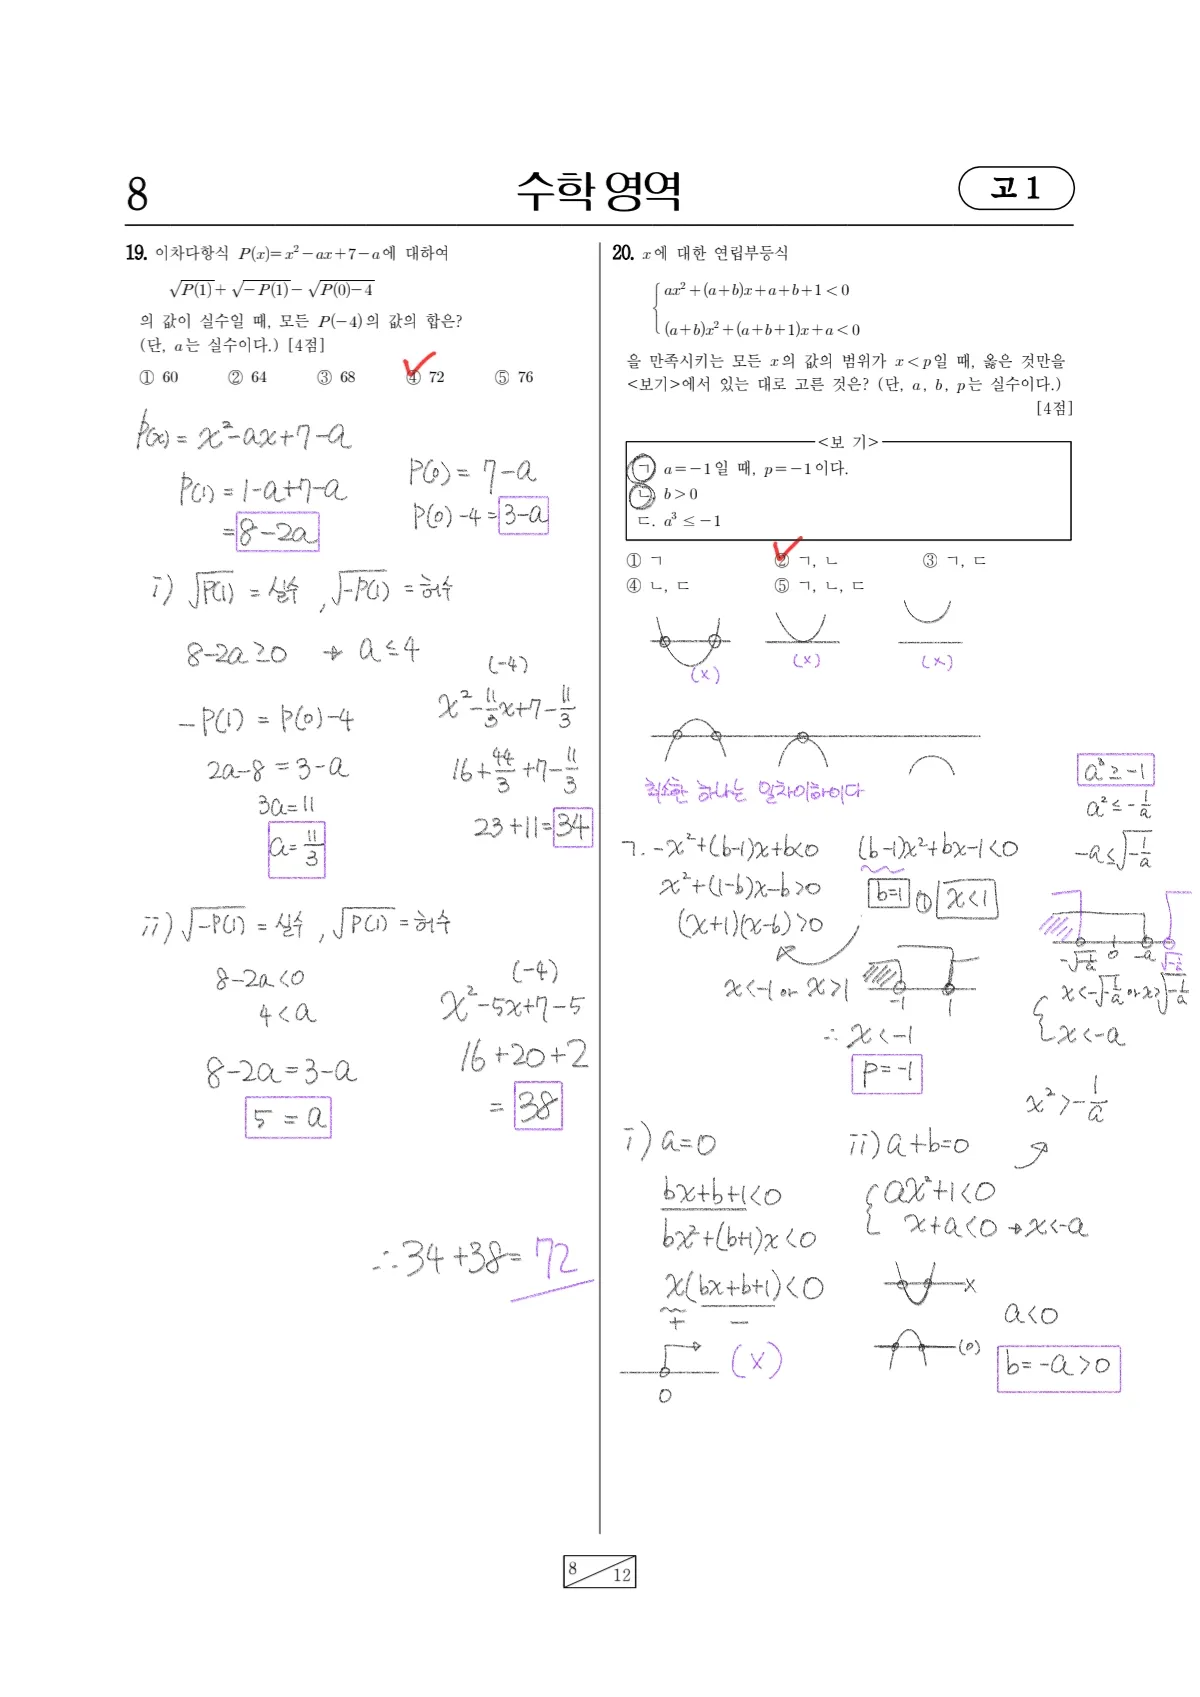 8
수학 영역
고 1
19. 이차다항식 P(x)=x²-ax+7-a에 대하여
√P(1)+√-P(1)-√P(0)-4
의 값이 실수일 때, 모든 P(-4)의 값의 합은?
(단, a는 실수이다.) [4점]
① 60 ② 64 ③ 68 ④ 72 ⑤ 76
P(x) = x²-ax+7-a
P(1) = 1-a+7-a
= 8-2a
P(0) = 7-a
P(0)-4 = 3-a
i) √P(1) = 실수, √-P(1) = 허수
8-2a≥0 → a≤4
-P(1) = P(0)-4
2a-8 = 3-a
3a=11
a=11/3
(-4)
x²-11/3x+7-11/3
16+44/3+7-11/3
23+11=34
ii) √-P(1) = 실수, √P(1) = 허수
8-2a<0
4<a
8-2a=3-a
5 = a
(-4)
x²-5x+7-5
16+20+2
= 38
∴34+38=72
20. x에 대한 연립부등식
ax²+(a+b)x+a+b+1<0
(a+b)x²+(a+b+1)x+a<0
을 만족시키는 모든 x의 값의 범위가 x<p일 때, 옳은 것만을
<보기>에서 있는 대로 고른 것은? (단, a, b, p는 실수이다.)
[4점]
<보 기>
ㄱ. a=-1일 때, p=-1이다.
ㄴ. b>0
ㄷ. a³≤-1
① ㄱ ② ㄱ, ㄴ ③ ㄱ, ㄷ
④ ㄴ, ㄷ ⑤ ㄱ, ㄴ, ㄷ
(x) (x) (x)
최소한 하나는 일차이하이다
ㄱ. -x²+(b-1)x+b<0
x²+(1-b)x-b>0
(x+1)(x-b)>0
x<-1 or x>1
(b-1)x²+bx-1<0
b=1 ① x<1
-1 1
∴ x<-1
p=-1
a³≥-1
a²≤-1/a
-a≤√-1/a
-√-1/a 0 -a √-1/a
x<-√-1/a or x>√-1/a
x<-a
x²>-1/a
i) a=0
bx+b+1<0
bx²+(b+1)x<0
x(bx+b+1)<0
+ -
(x)
0
ii) a+b=0
ax²+1<0
x+a<0 → x<-a
x
(o)
a<0
b=-a>0
8
12